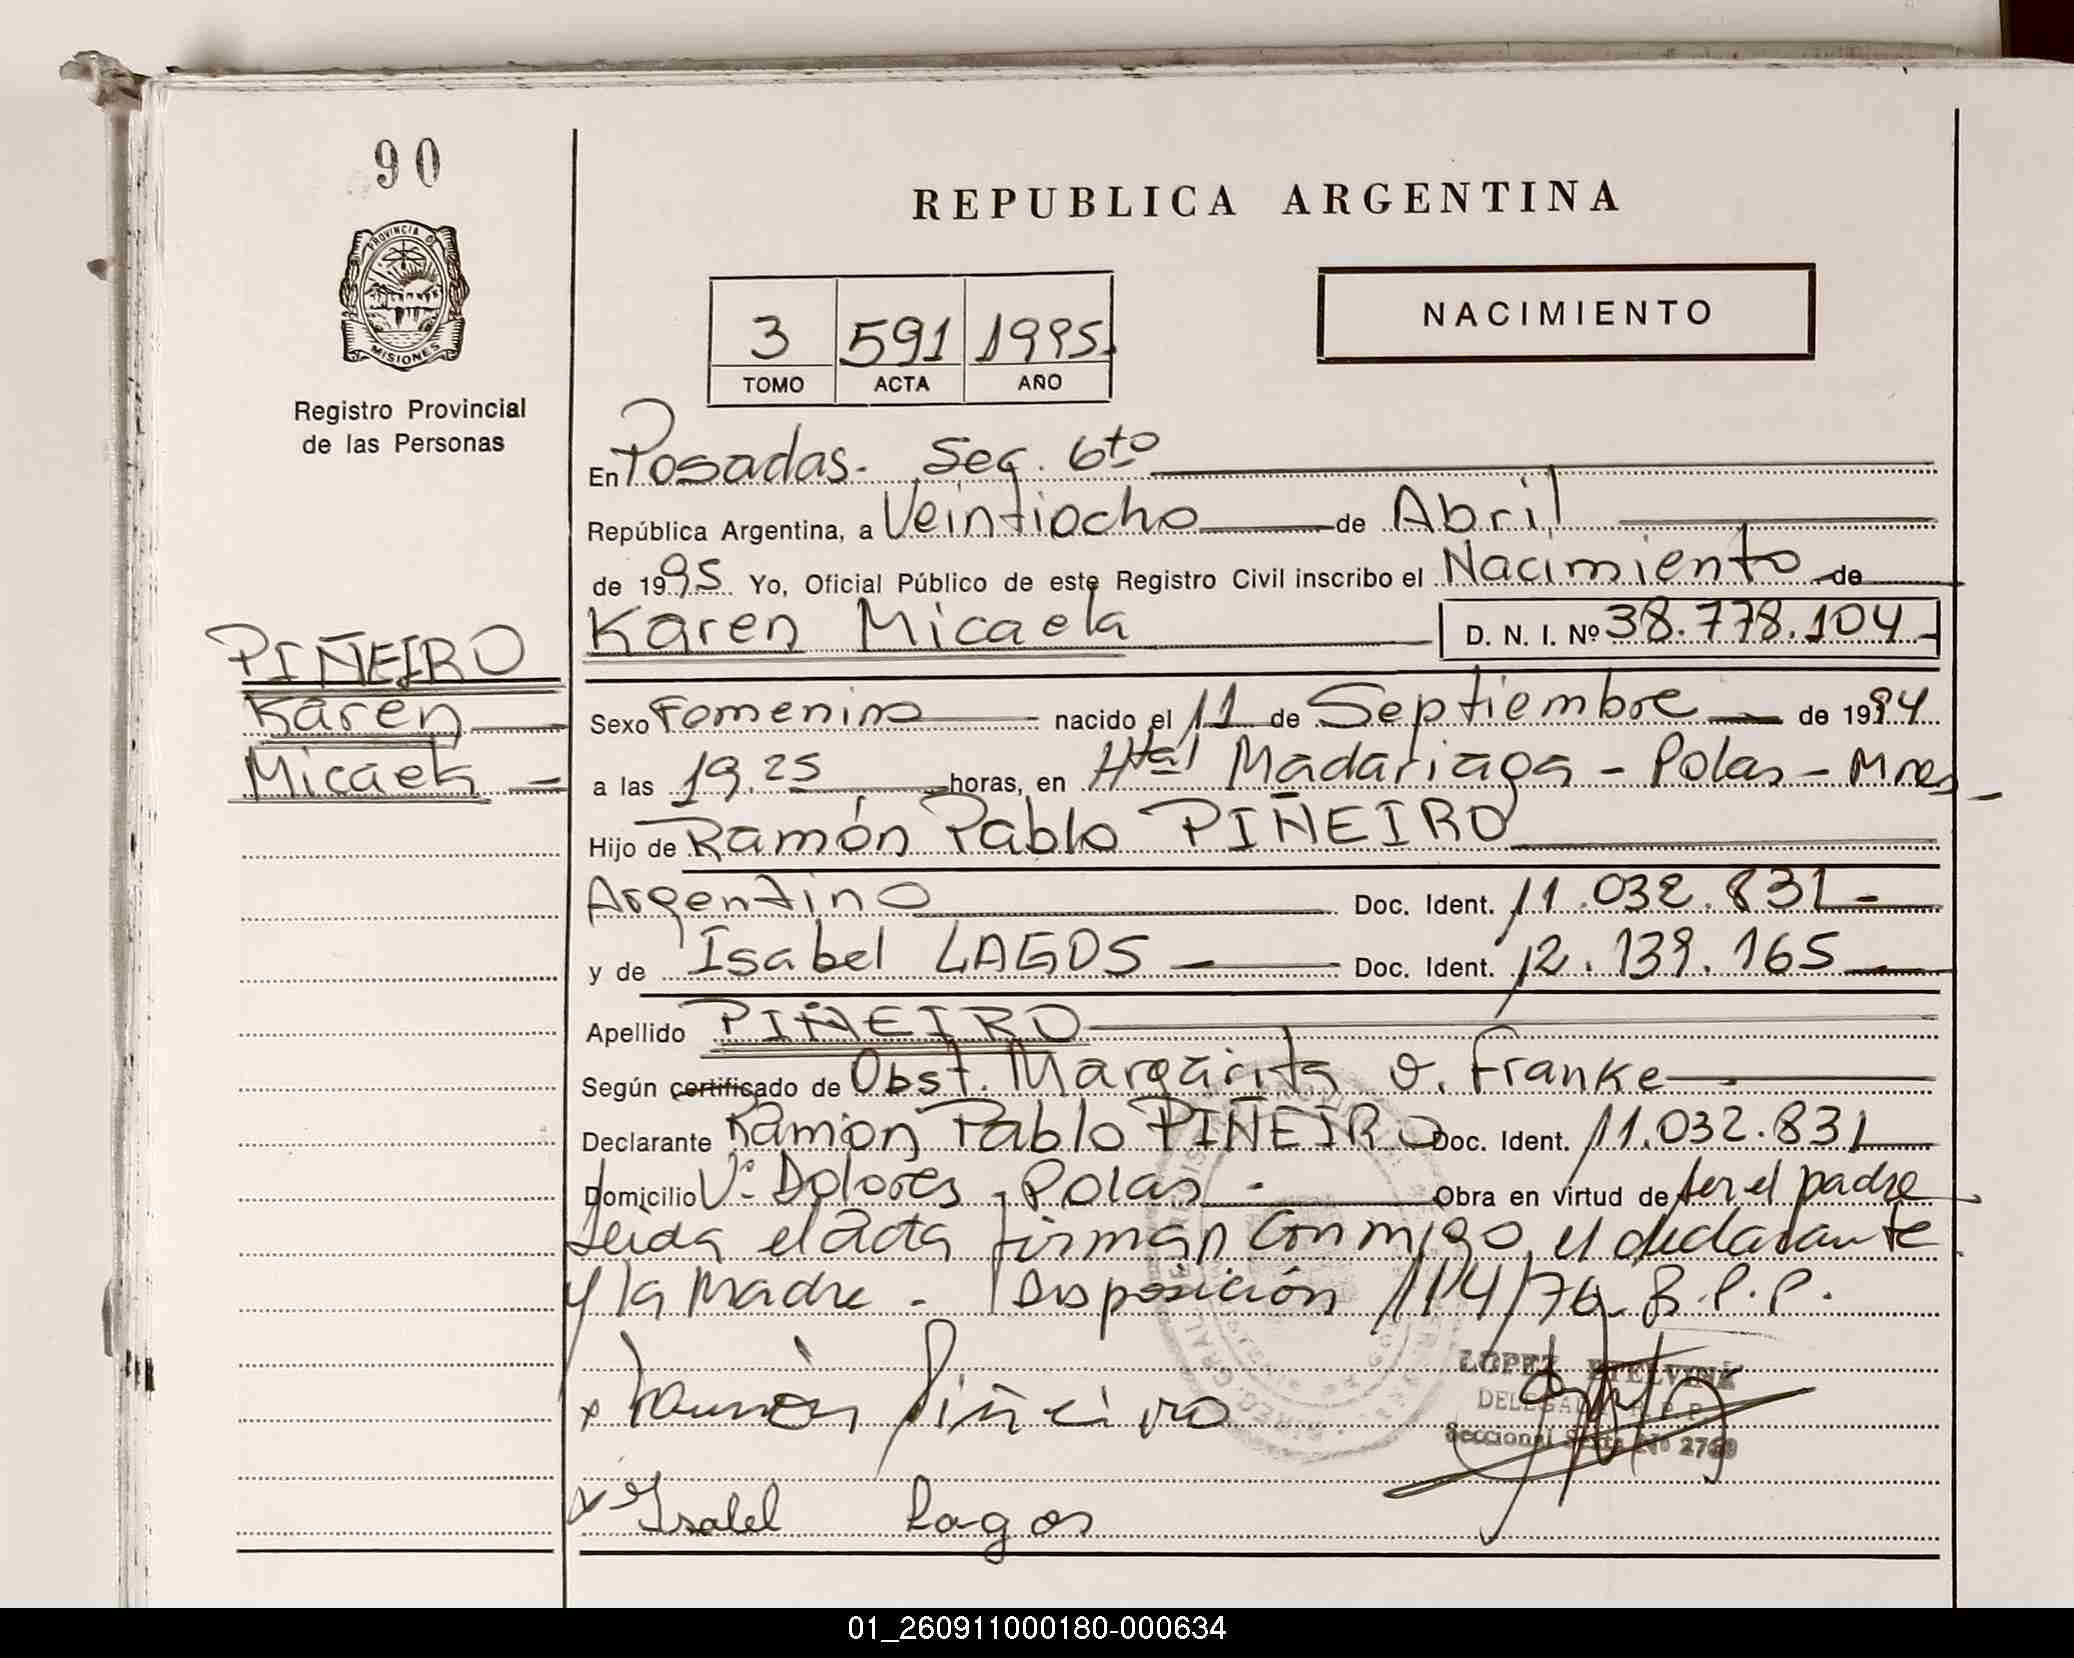 90
PROVINCIA D
MISIONES
Registro Provincial
de las Personas
PIÑEIRO
Karen
Micaela
REPUBLICA ARGENTINA
3 591 1995
TOMO ACTA AÑO
NACIMIENTO
En Posadas. Sec. 6to
República Argentina, a Veintiocho de Abril
de 1995 Yo, Oficial Público de este Registro Civil inscribo el Nacimiento de
Karen Micaela D. N. I. Nº 38.778.104
Sexo Femenino nacido el 11 de Septiembre de 1994
a las 19.25 horas, en Htal Madariaga - Pdas - Mnes
Hijo de Ramón Pablo PIÑEIRO
Argentino Doc. Ident. 11.032.831
y de Isabel LAGOS Doc. Ident. 12.139.165
Apellido PIÑEIRO
Según certificado de Obst. Margarita O. Franke
Declarante Ramón Pablo PIÑEIRO Doc. Ident. 11.032.831
Domicilio Vº Dolores - Pdas - Obra en virtud de ser el padre
Leida el acta firman conmigo, el declarante
y la madre - Disposición 114/76 R.P.P.
LOPEZ ETELVINA
DELEGADA R.P.P.
x Ramón Piñeiro
Seccional Sexta Nº 2739
x Isabel Lagos
01_260911000180-000634